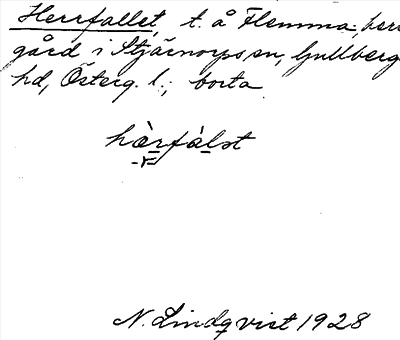 Herrfallet, t. å Flemma, herr
gård i Stjärnorps sn, Gullberg
hd, Österg. l.; borta
hærfàlst
-r-
N. Lindqvist 1928